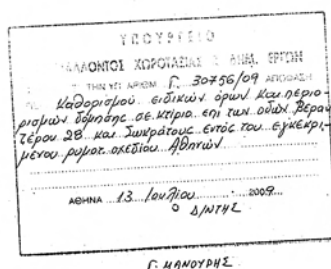 ΥΠΟΥΡΓΕΙΟ
ΒΑΛΛΟΝΤΟΣ ΧΩΡΟΤΑΞΙΑΣ & ΔΗΜ. ΕΡΓΩΝ
ΤΗΝ ΥΠ ΑΡΙΘΜ Γ. 30756/09 ΑΠΟΦΑΣΗ
Καθορισμού ειδικών όρων και περιο-
ρισμών δόμησης σε κτίριο επί των οδών Βεραν
τέρου 28 και Σωκράτους εντός του εγκεκρι-
μένου ρυμοτ. σχεδίου Αθηνών
ΑΘΗΝΑ 13 Ιουλίου 2009
Ο Δ/ΝΤΗΣ
Γ. ΜΑΝΟΥΡΗΣ